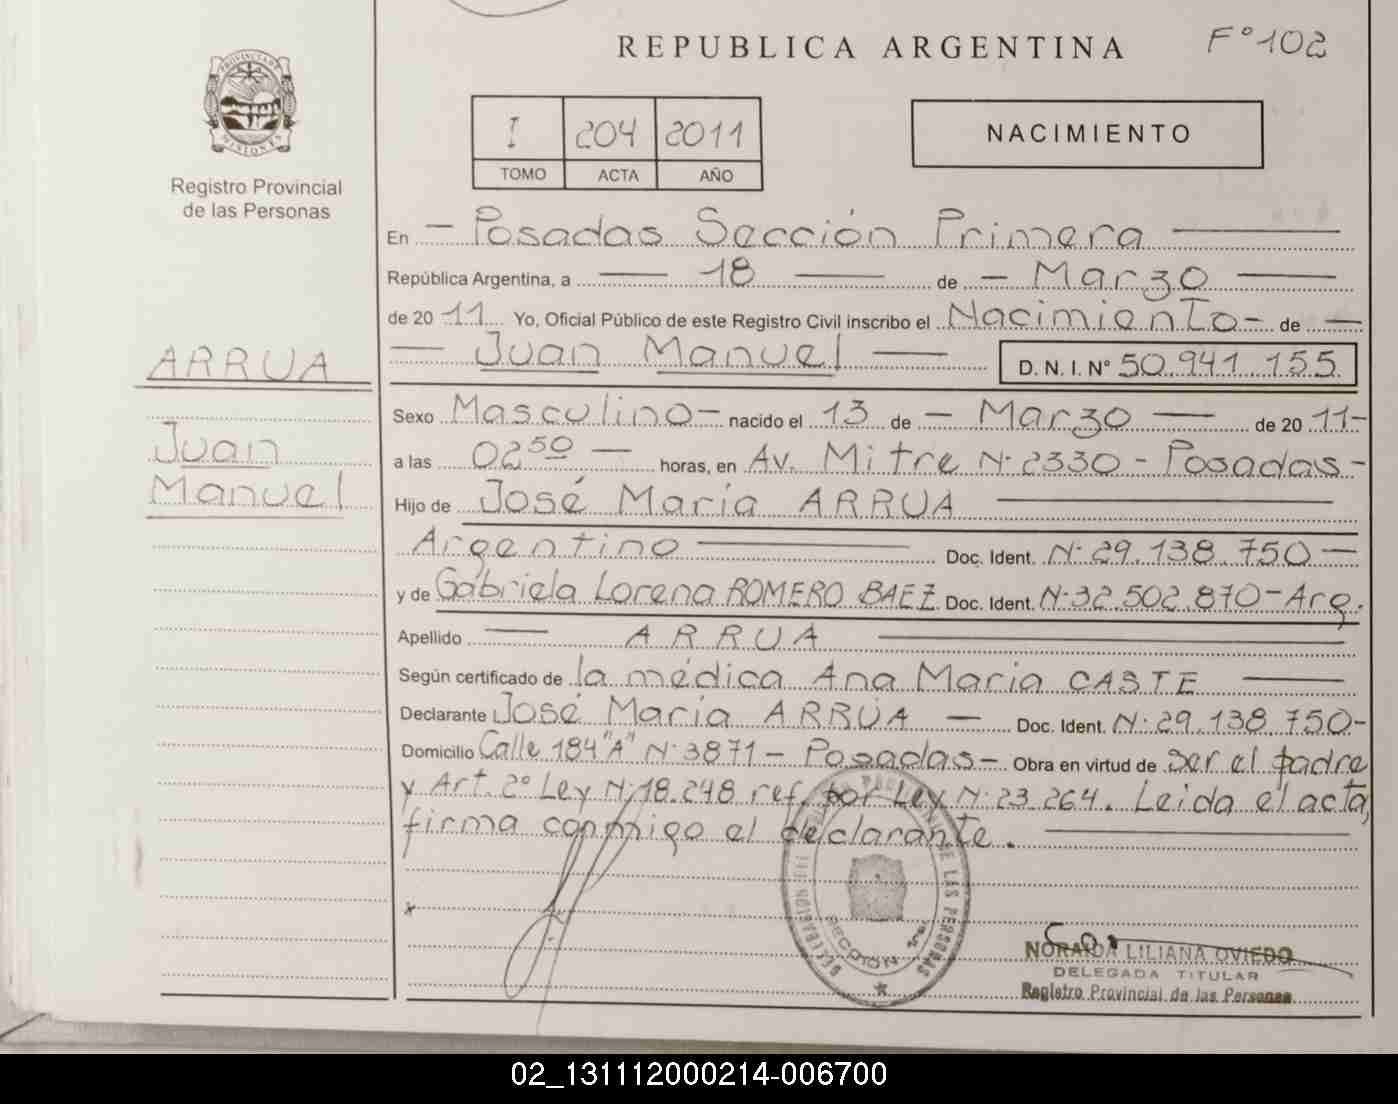 REPUBLICA ARGENTINA
F° 102
PROVINCIA DE MISIONES
Registro Provincial
de las Personas
I 204 2011
TOMO ACTA AÑO
NACIMIENTO
En — Posadas Sección Primera —
República Argentina, a — 18 — de — Marzo —
de 20 11 Yo, Oficial Público de este Registro Civil inscribo el Nacimiento - de —
— Juan Manuel — D. N. I. N° 50.941.155
ARRUA
Juan
Manuel
Sexo Masculino - nacido el 13 de — Marzo — de 20 11 -
a las 02 50 — horas, en Av. Mitre N° 2330 - Posadas -
Hijo de José María ARRUA —
Argentino — Doc. Ident. N° 29.138.750 —
y de Gabriela Lorena ROMERO BAEZ Doc. Ident. N° 32.502.870 - Arg.
Apellido — ARRUA —
Según certificado de la médica Ana María CASTE —
Declarante José María ARRUA — Doc. Ident. N° 29.138.750 -
Domicilio Calle 184 "A" N° 3871 - Posadas - Obra en virtud de ser el padre
y Art. 2° Ley N° 18.248 ref. por Ley N° 23.264. Leida el acta,
firma conmigo el declarante. —
DELEGACION DEL REGISTRO PROVINCIAL DE LAS PERSONAS
SECCION 1ra
NORAIDA LILIANA OVIEDO
DELEGADA TITULAR
Registro Provincial de las Personas
02_131112000214-006700